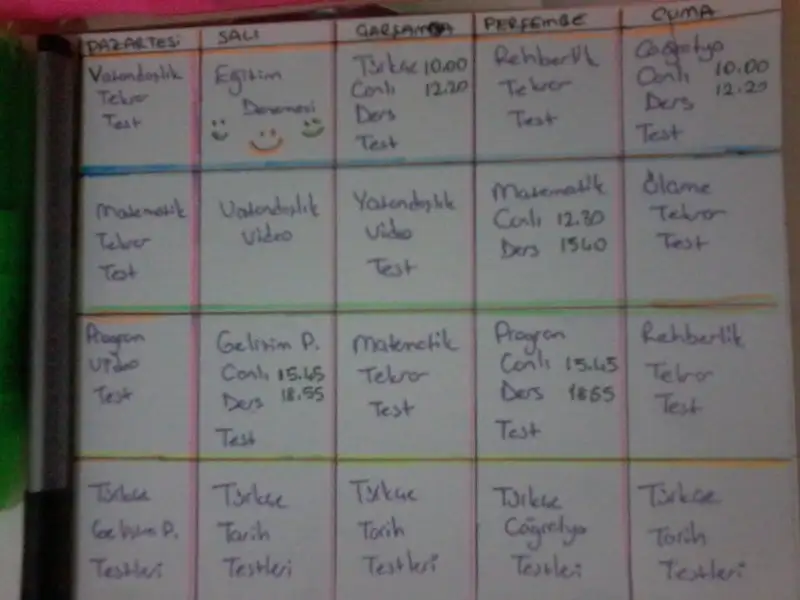 PAZARTESİ
SALI
ÇARŞAMBA
PERŞEMBE
CUMA
Vatandaşlık
Tekrar
Test
Eğitim
Denemesi
Türkçe 10.00
Canlı 12.20
Ders
Test
Rehberlik
Tekrar
Test
Coğrafya
Canlı 10.00
Ders 12.20
Test
Matematik
Tekrar
Test
Vatandaşlık
Video
Vatandaşlık
Video
Test
Matematik
Canlı 12.30
Ders 1540
Ölçme
Tekrar
Test
Program
Video
Test
Gelişim P.
Canlı 15.45
Ders 18.55
Test
Matematik
Tekrar
Test
Program
Canlı 15.45
Ders 1855
Test
Rehberlik
Tekrar
Test
Türkçe
Gelişim P.
Testleri
Türkçe
Tarih
Testleri
Türkçe
Tarih
Testleri
Türkçe
Coğrafya
Testleri
Türkçe
Tarih
Testleri